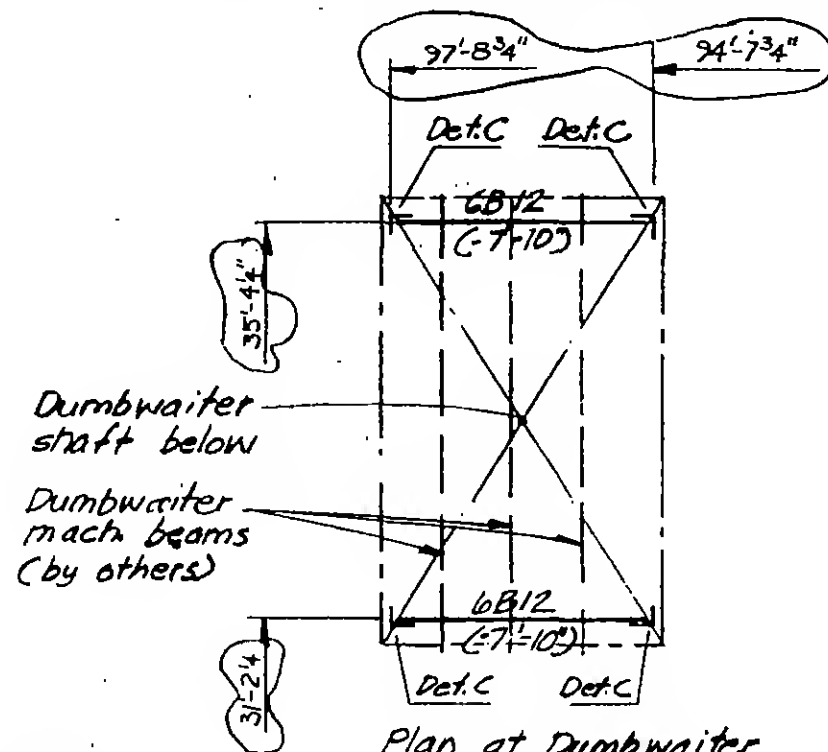 97'-8¾" 94'-7¾"
Det.C Det.C
6B12
(-7'-10")
35'-4¼"
Dumbwaiter
shaft below
Dumbwaiter
mach. beams
(by others)
6B12
(-7'-10")
31'-2¼
Det.C Det.C
Plan at Dumbwaiter